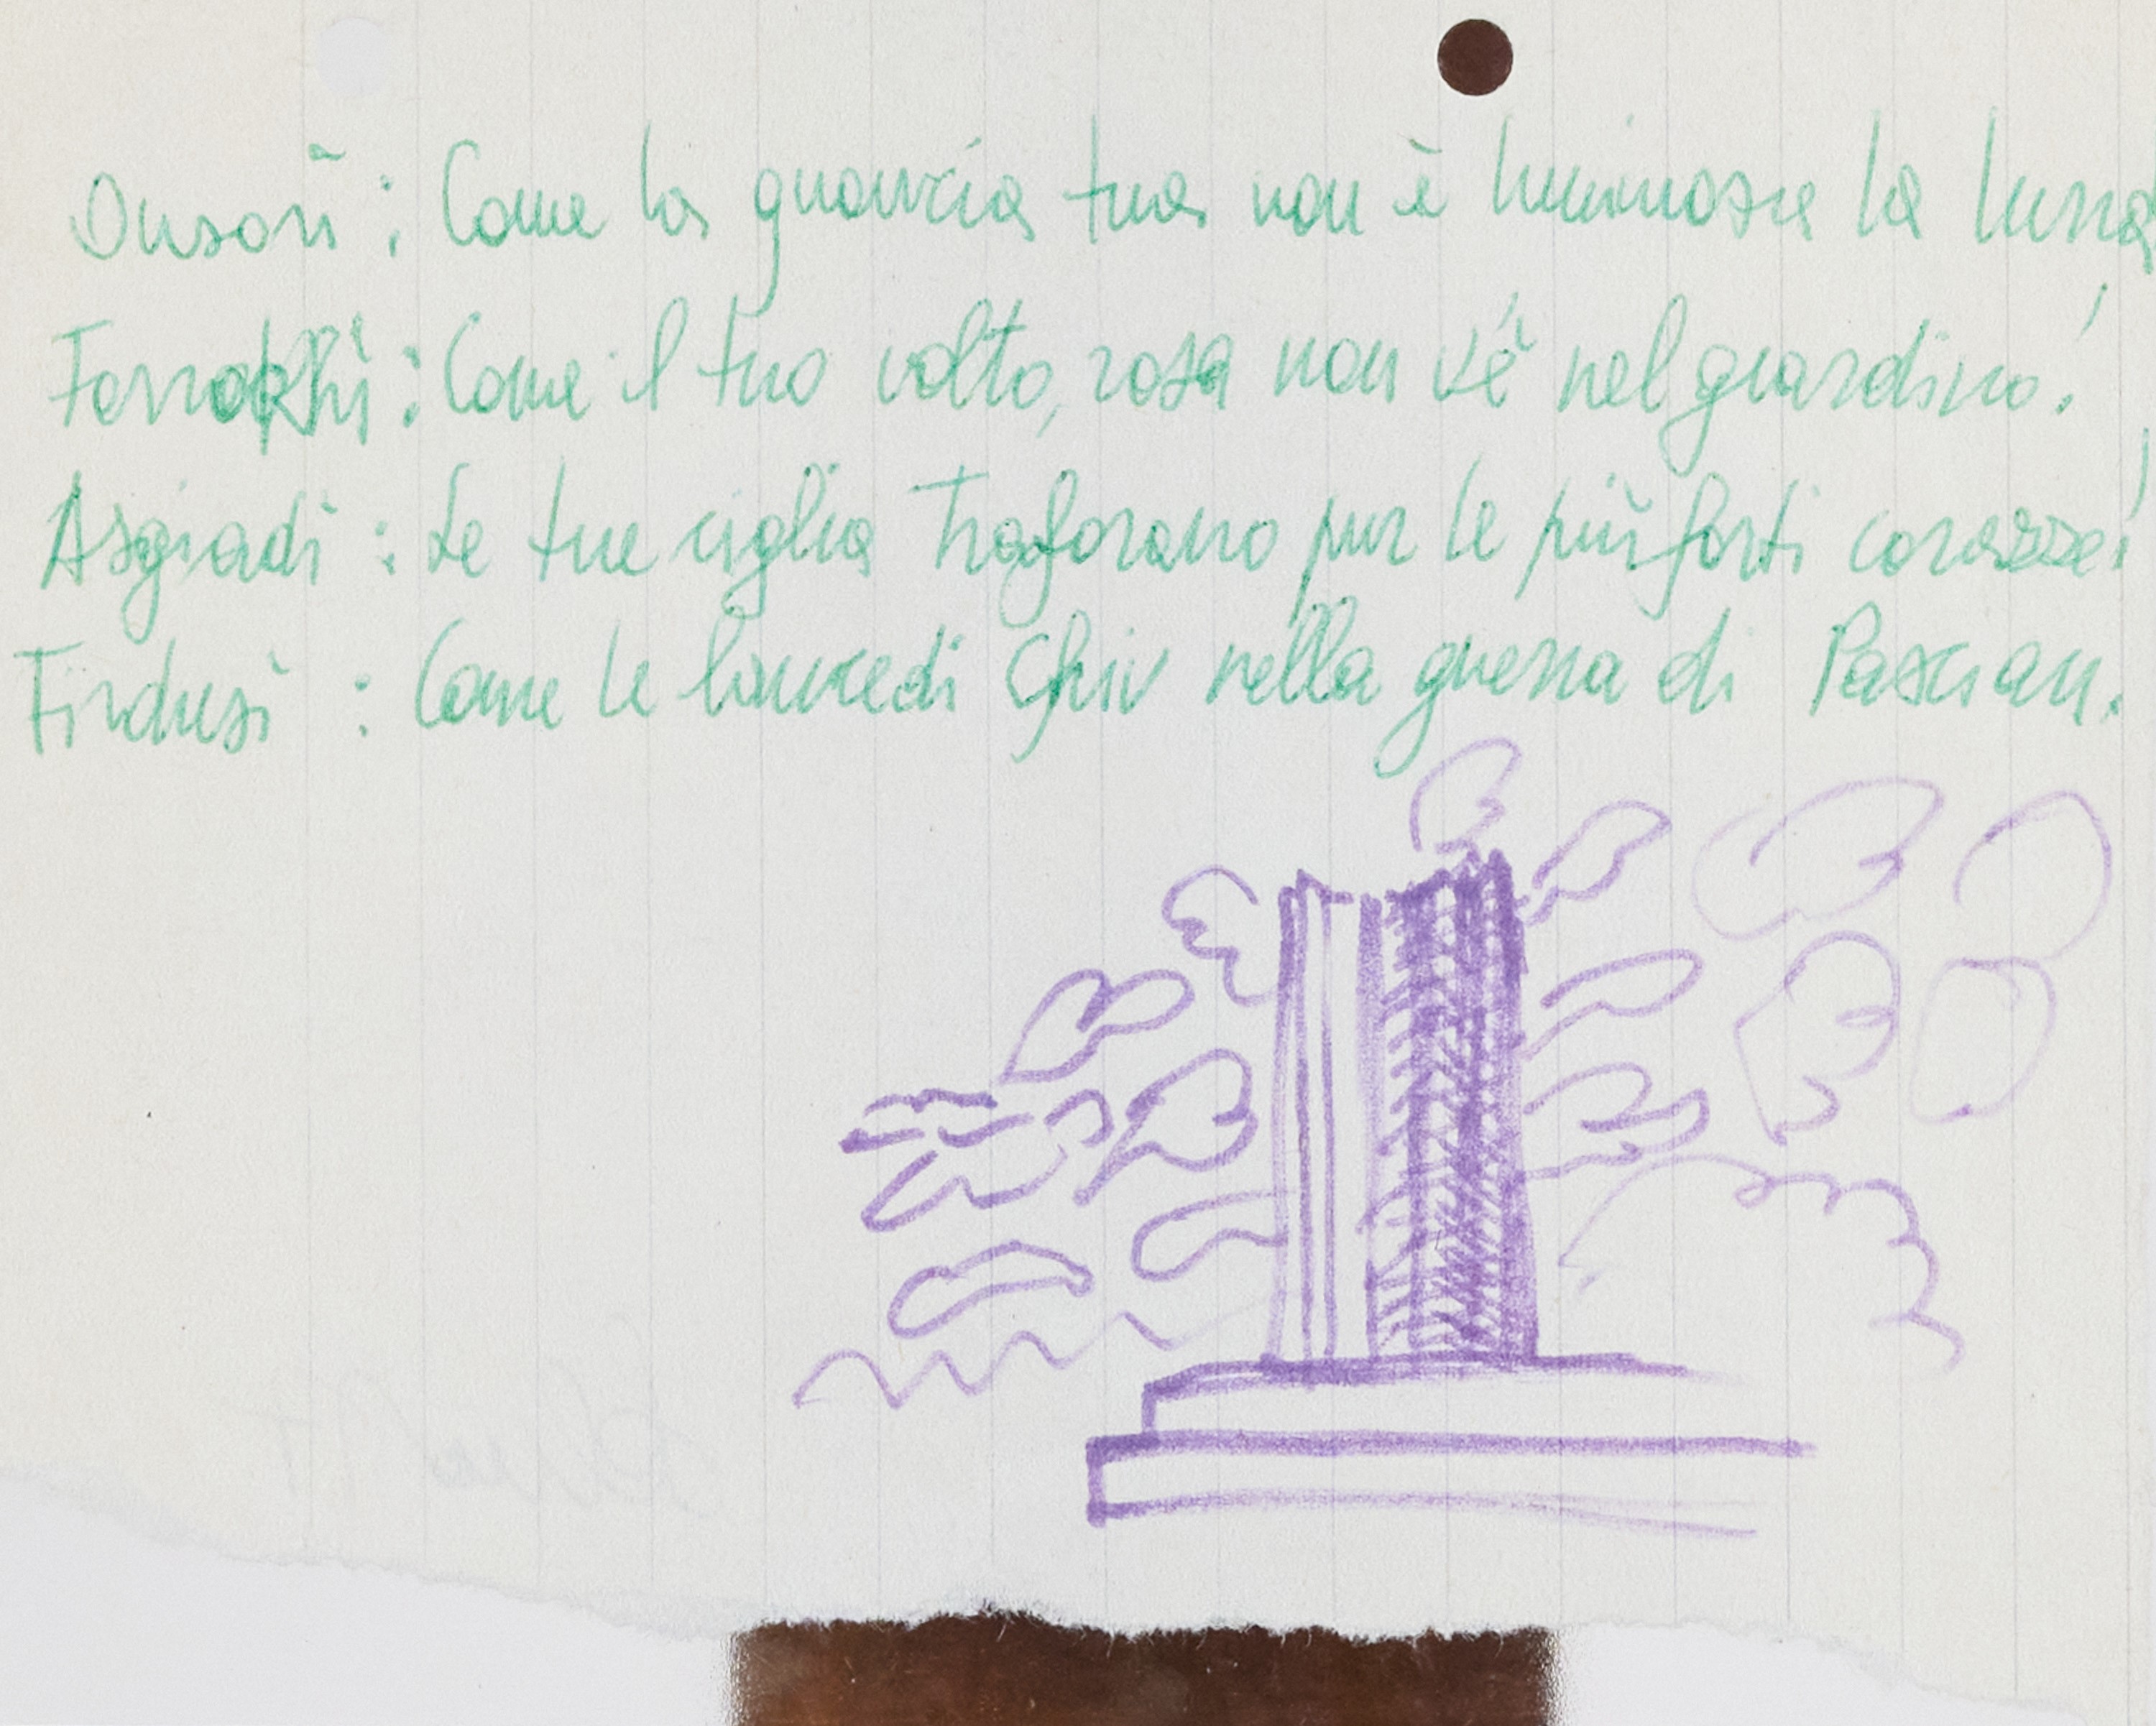 Onsorì : Come la guancia tua non è luminosa la luna
Farrokhì : Come il tuo volto, rosa non v'è nel giardino!
Asgiadì : Le tue ciglia traforano pur le più forti corazze!
Firdusì : Come le lance di Ghiv nella guerra di Pascian.